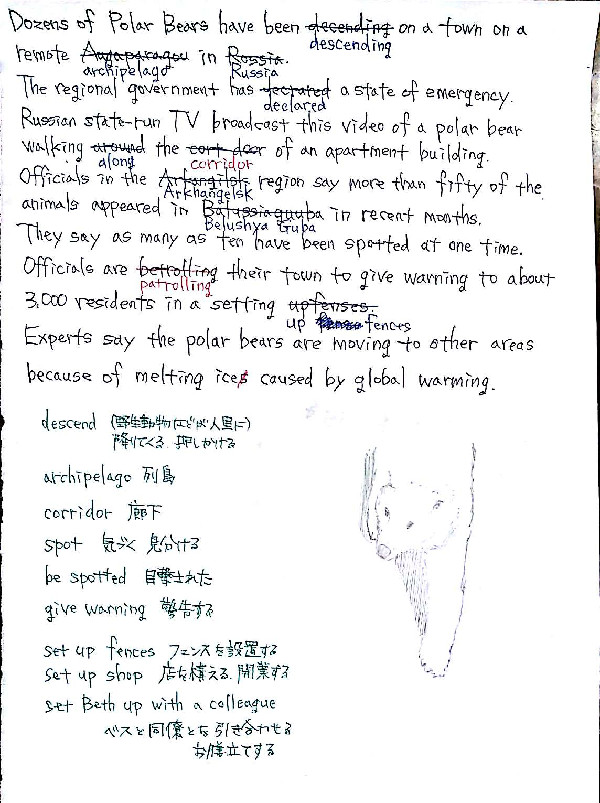 Dozens of Polar Bears have been decending on a town on a
descending
remote in Rossia.
archipelago Russia
The regional government has a state of emergency.
declared
Russian state-run TV broadcast this video of a polar bear
walking around the cort door of an apartment building.
along corridor
Officials in the region say more than fifty of the
Arkhangelsk
animals appeared in in recent months.
Belushya Guba
They say as many as ten have been spotted at one time.
Officials are betrolling their town to give warning to about
patrolling
3,000 residents in a setting upfenses.
up fences
Experts say the polar bears are moving to other areas
because of melting ices caused by global warming.
descend (野生動物などが人里に)
降りてくる 押しかける
archipelago 列島
corridor 廊下
spot 気づく 見分ける
be spotted 目撃された
give warning 警告する
set up fences フェンスを設置する
set up shop 店を構える 開業する
set Beth up with a colleague
ベスと同僚とを引き合わせる
お膳立てする